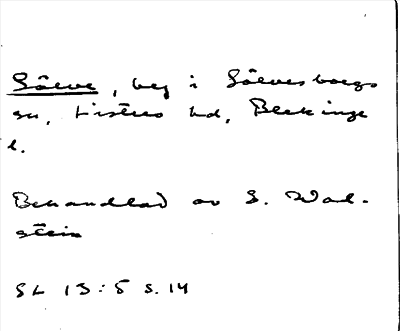 Sölve, beg i Sölvesborgs
sn, Listers hd, Blekinge
l.
Behandlad av S. Wal-
stein
SL 13:5 s.14